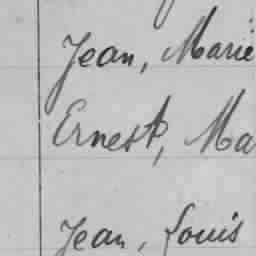 Jean, Marie
Ernest, Ma
Jean, Louis